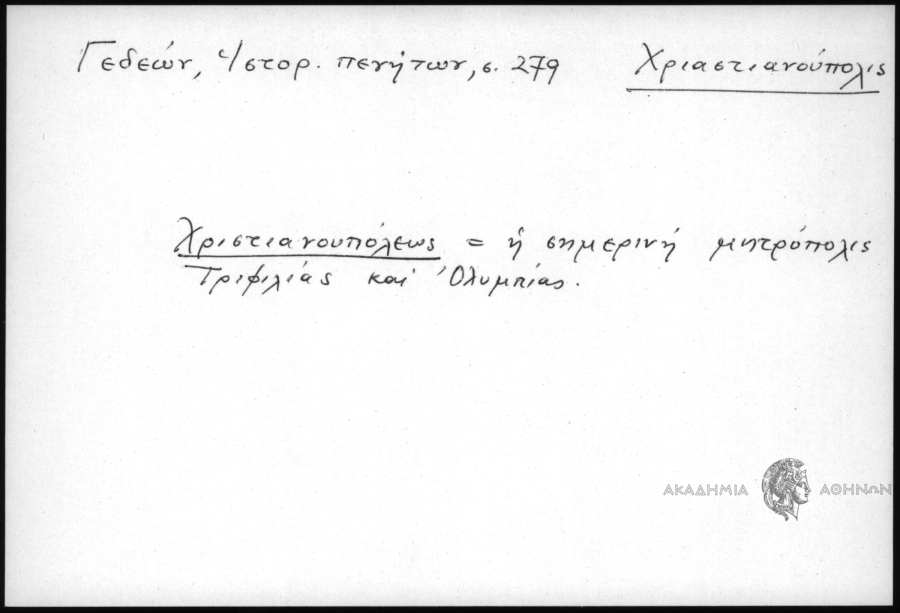 Γεδεών, Ἱστορ. πενήτων, σ. 279 Χριαστιανούπολις
Χριστιανουπόλεως = ἡ σημερινή μητρόπολις
Τριφιλίας καί Ὀλυμπίας.
ΑΚΑΔΗΜΙΑ ΑΘΗΝΩΝ